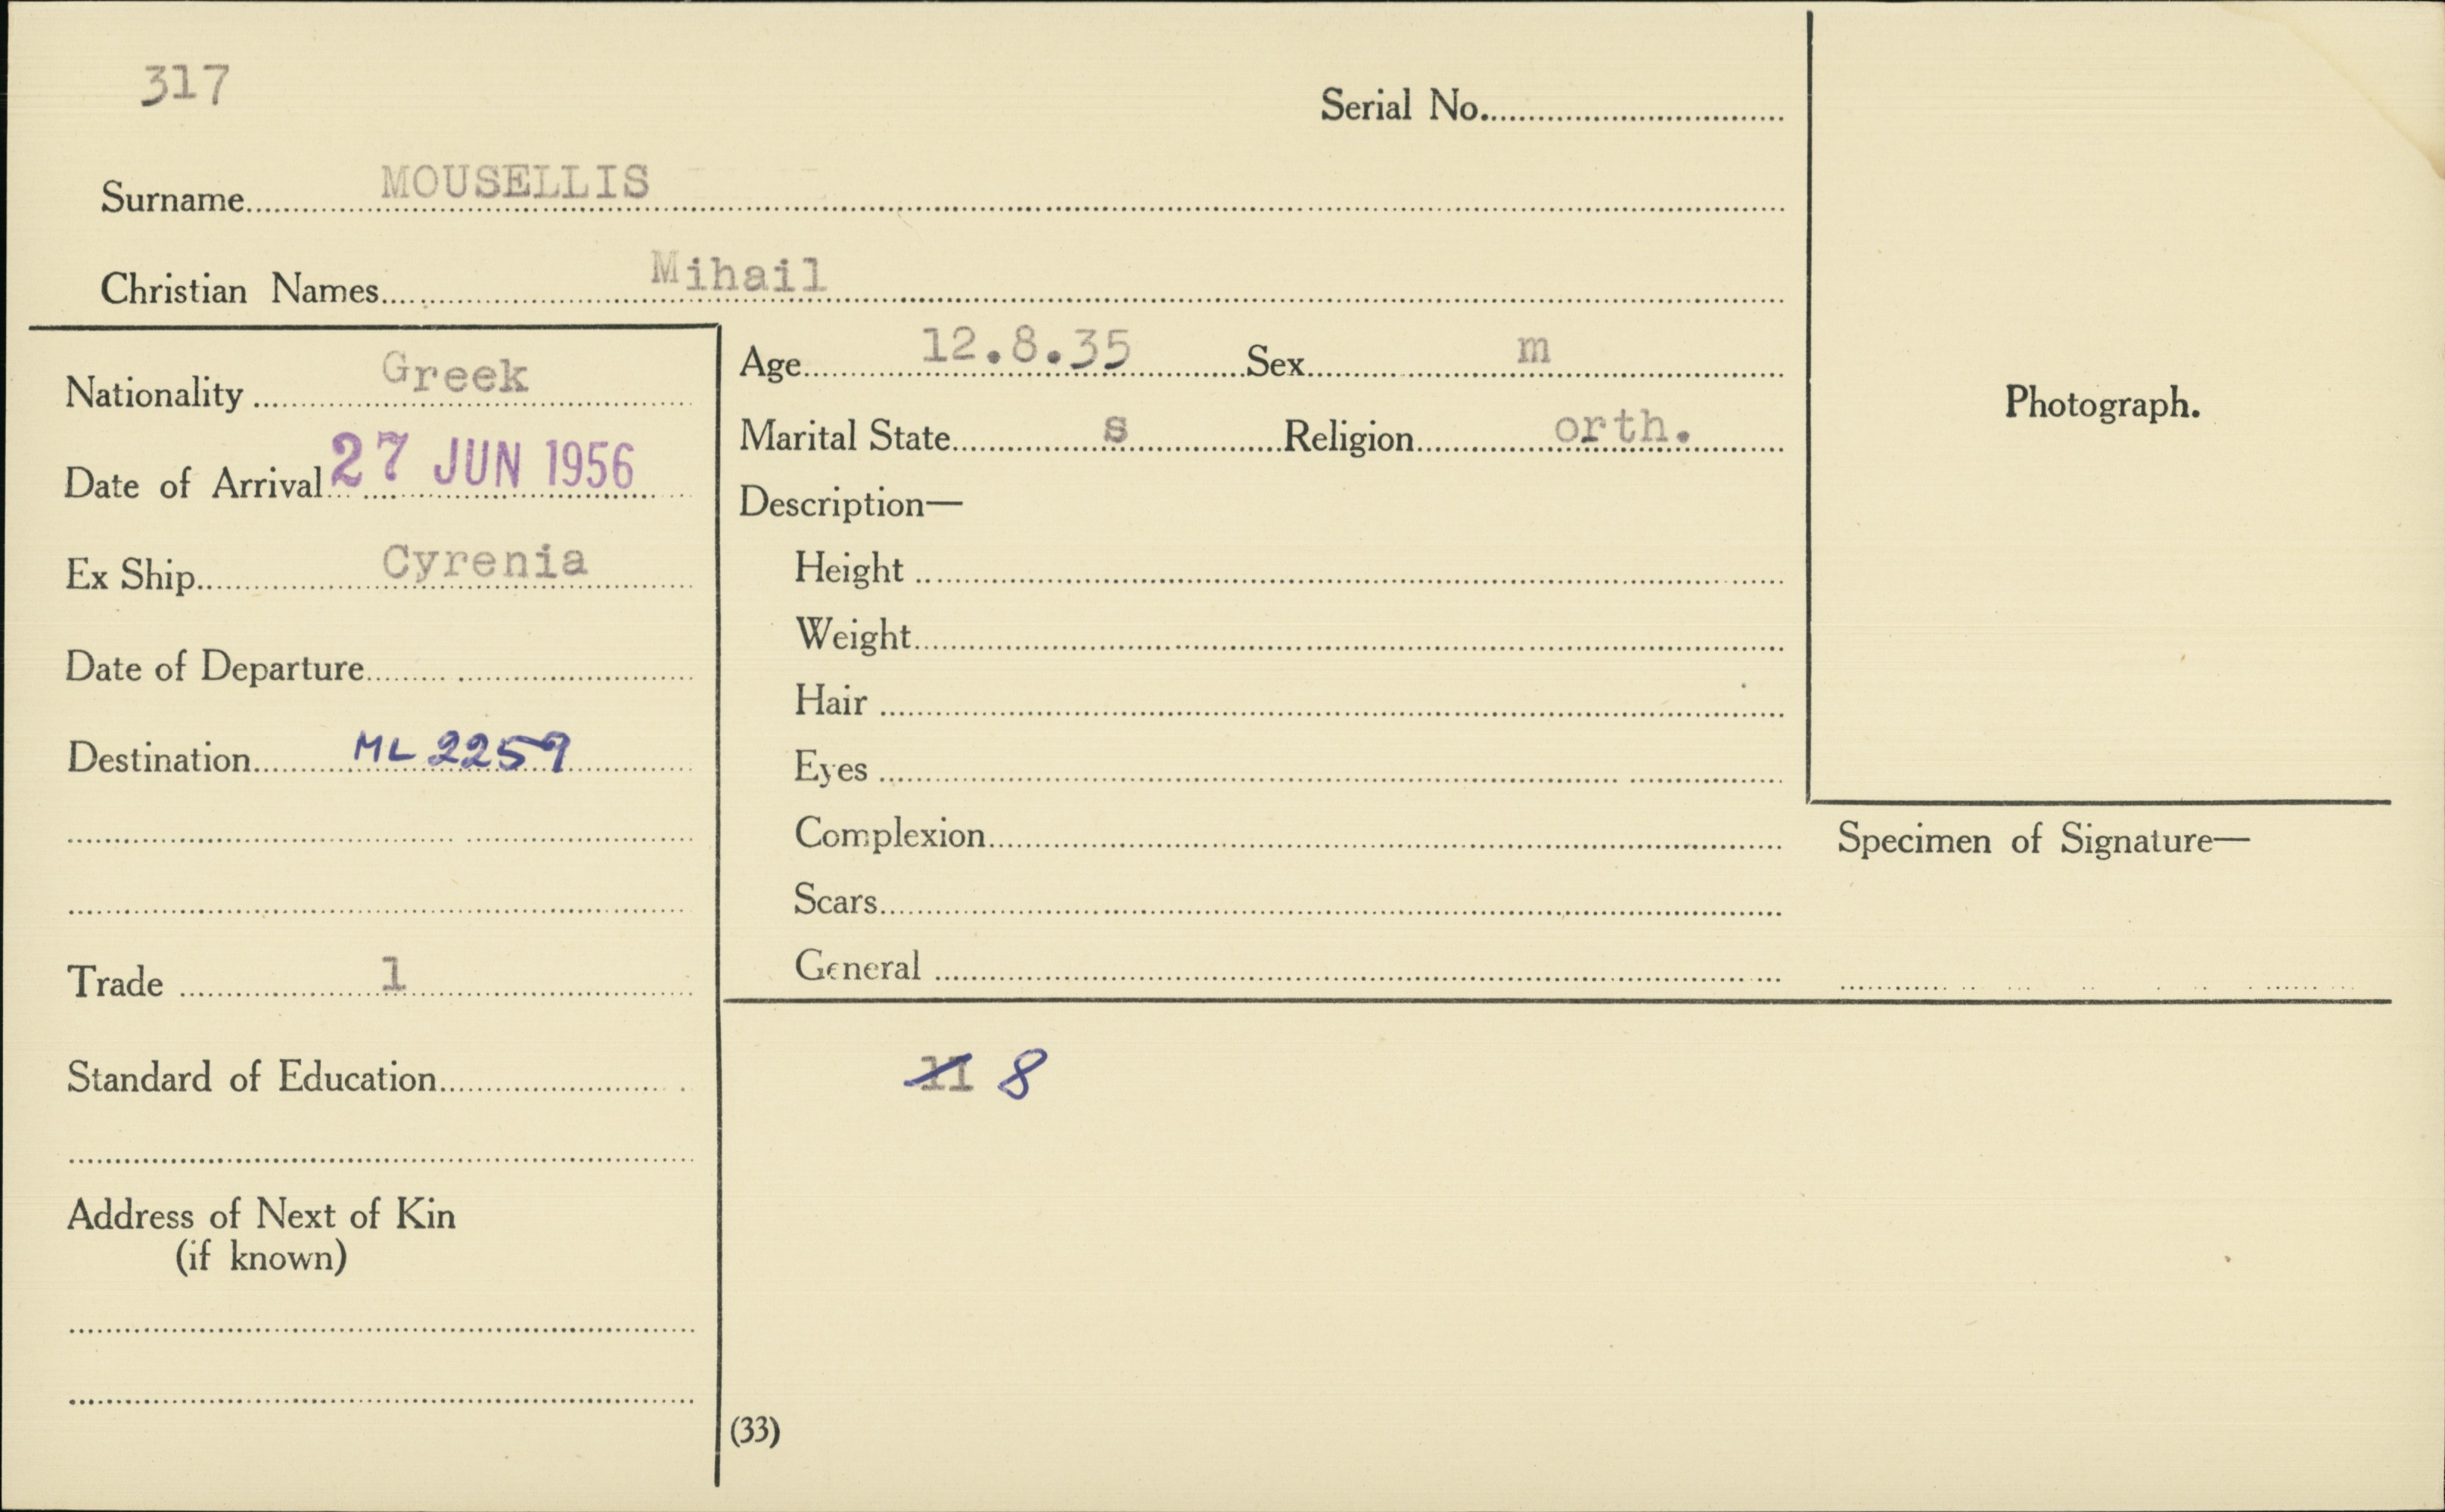 317
Serial No.
Surname MOUSELLIS
Christian Names Mihail
Nationality Greek
Date of Arrival 27 JUN 1956
Ex Ship Cyrenia
Date of Departure
Destination ML 2259
Trade 1
Standard of Education
Address of Next of Kin
(if known)
Age 12.8.35 Sex m
Marital State s Religion orth.
Description—
Height
Weight
Hair
Eyes
Complexion
Scars
General
Photograph.
Specimen of Signature—
11 8
(33)